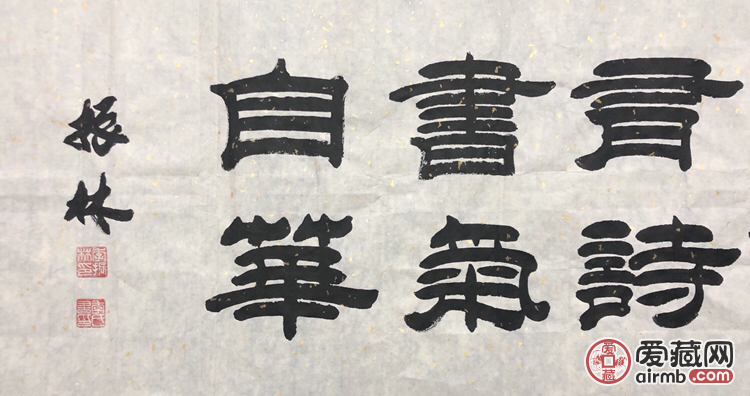 有詩
書氣
自華
振林
爱藏网
airmb.com